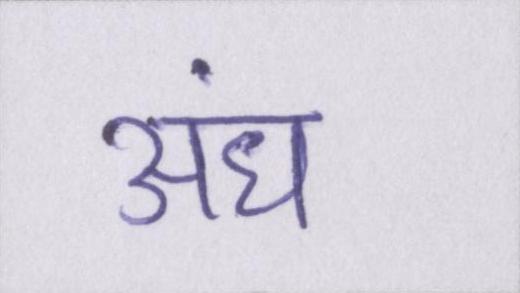 अंध